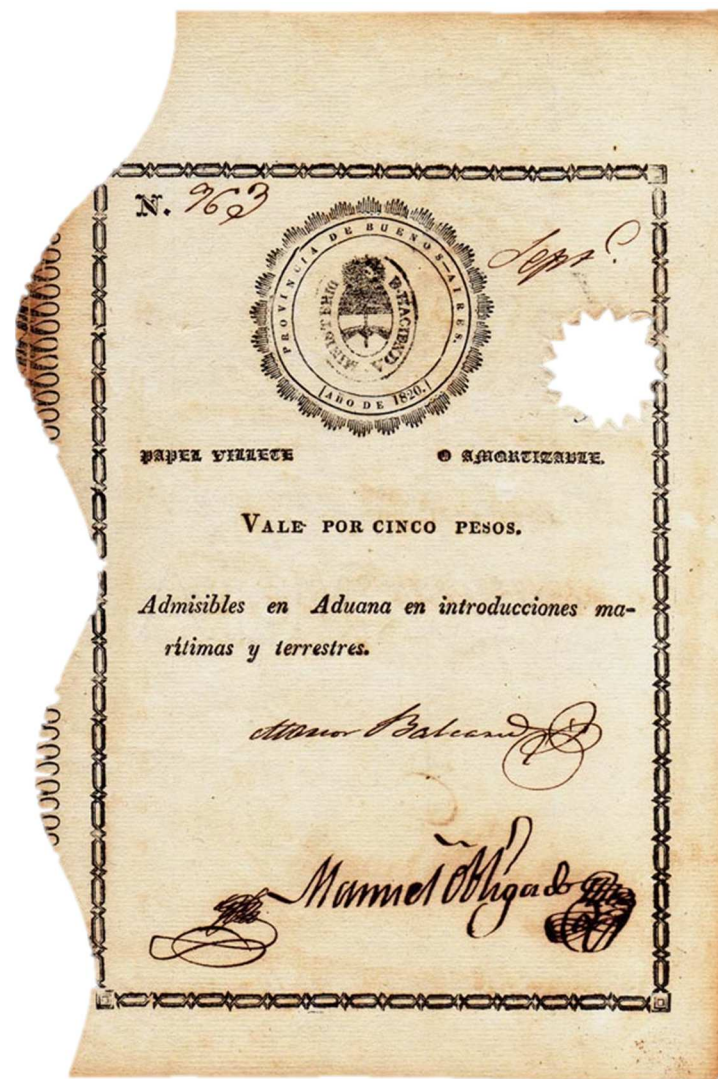 N. 963
Sept.e
PROVINCIA DE BUENOS-AIRES.
MINISTERIO D. HACIENDA
AÑO DE 1820.
PAPEL VILLETE O AMORTIZABLE.
VALE POR CINCO PESOS.
Admisibles en Aduana en introducciones ma-
rítimas y terrestres.
Balcarce
Manuel Obligado